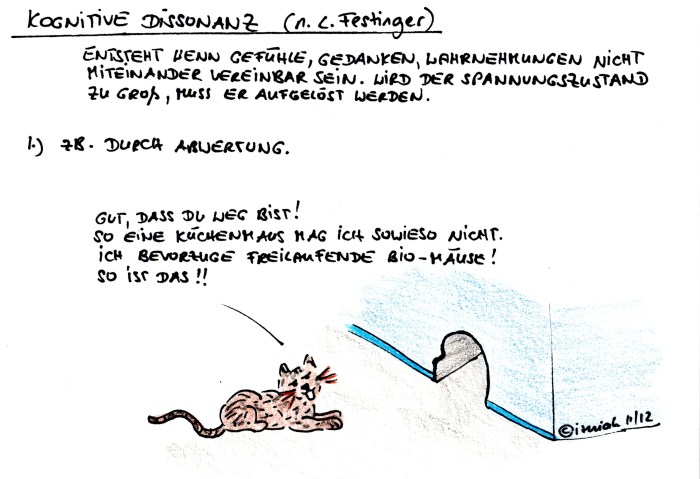 KOGNITIVE DISSONANZ (n. L. Festinger)
ENTSTEHT WENN GEFÜHLE, GEDANKEN, WAHRNEHMUNGEN NICHT
MITEINANDER VEREINBAR SEIN. WIRD DER SPANNUNGSZUSTAND
ZU GROß, MUSS ER AUFGELÖST WERDEN.
1.) ZB. DURCH ABWERTUNG.
GUT, DASS DU WEG BIST!
SO EINE KÜCHENMAUS MAG ICH SOWIESO NICHT.
ICH BEVORZUGE FREILAUFENDE BIO-MÄUSE!
SO IST DAS!!
© 11/12